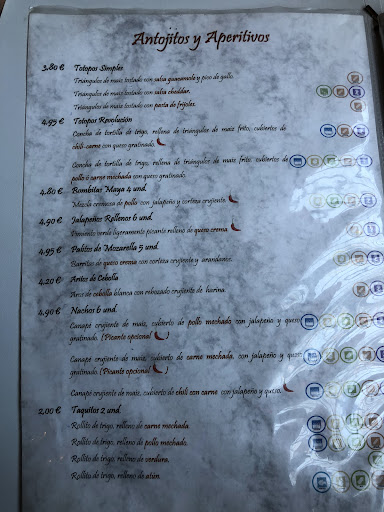 Antojitos y Aperitivos
3.80 € Totopos Simples
Triángulos de maíz tostado con salsa guacamole y pico de gallo.
Triángulos de maíz tostado con salsa cheddar.
Triángulos de maíz tostado con pasta de frijoles.
4.95 € Totopos Revolución
Concha de tortilla de trigo, rellena de triángulos de maíz frito, cubiertos de
chili-carne con queso gratinado.
Concha de tortilla de trigo, rellena de triángulos de maíz frito, cubiertos de
pollo o carne mechada con queso gratinado.
4.80 € Bombitas Maya 4 und.
Mezcla cremosa de pollo con jalapeño y corteza crujiente
4.90 € Jalapeños Rellenos 6 und.
Pimiento verde ligeramente picante relleno de queso crema
4.95 € Palitos de Mozarella 5 und.
Barritas de queso crema con corteza crujiente y arandanos.
4.20 € Aritos de Cebolla
Aros de cebolla blanca con rebozado crujiente de harina
4.90 € Nachos 6 und.
Canapé crujiente de maíz, cubierto de pollo mechado con jalapeño y queso
gratinado. (Picante opcional )
Canapé crujiente de maíz, cubierto de carne mechada, con jalapeño y queso
gratinado. (Picante opcional )
Canapé crujiente de maíz, cubierto de chili con carne con jalapeño y queso.
2.00 € Taquitos 2 und.
Rollito de trigo, relleno de carne mechada.
Rollito de trigo, relleno de pollo mechado.
Rollito de trigo, relleno de verdura.
Rollito de trigo, relleno de atún.